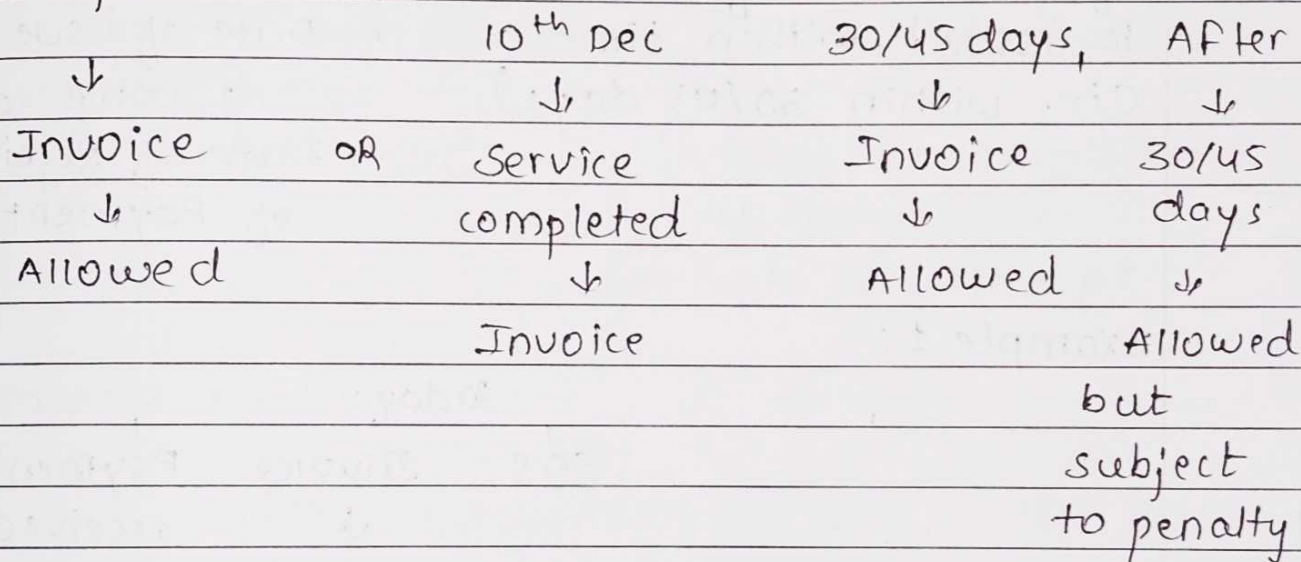 10th Dec 30/45 days, After
↓ ↓ ↓ ↓
Invoice OR Service Invoice 30/45
↓ completed ↓ days
Allowed ↓ Allowed ↓
Invoice Allowed
but
subject
to penalty